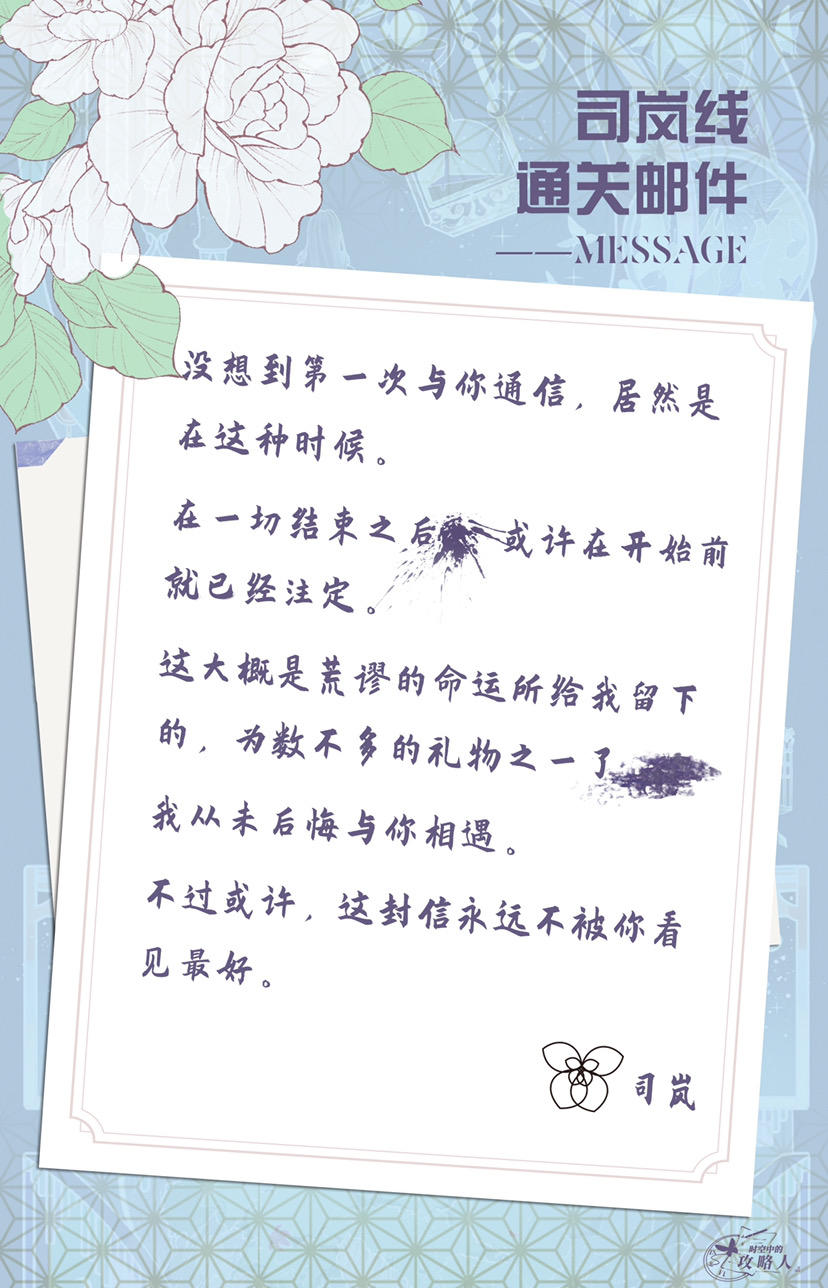 司岚线
通关邮件
——MESSAGE
没想到第一次与你通信，居然是
在这种时候。
在一切结束之后 或许在开始前
就已经注定。
这大概是荒谬的命运所给我留下
的，为数不多的礼物之一了
我从未后悔与你相遇。
不过或许，这封信永远不被你看
见最好。
司岚
时空中的
攻略人